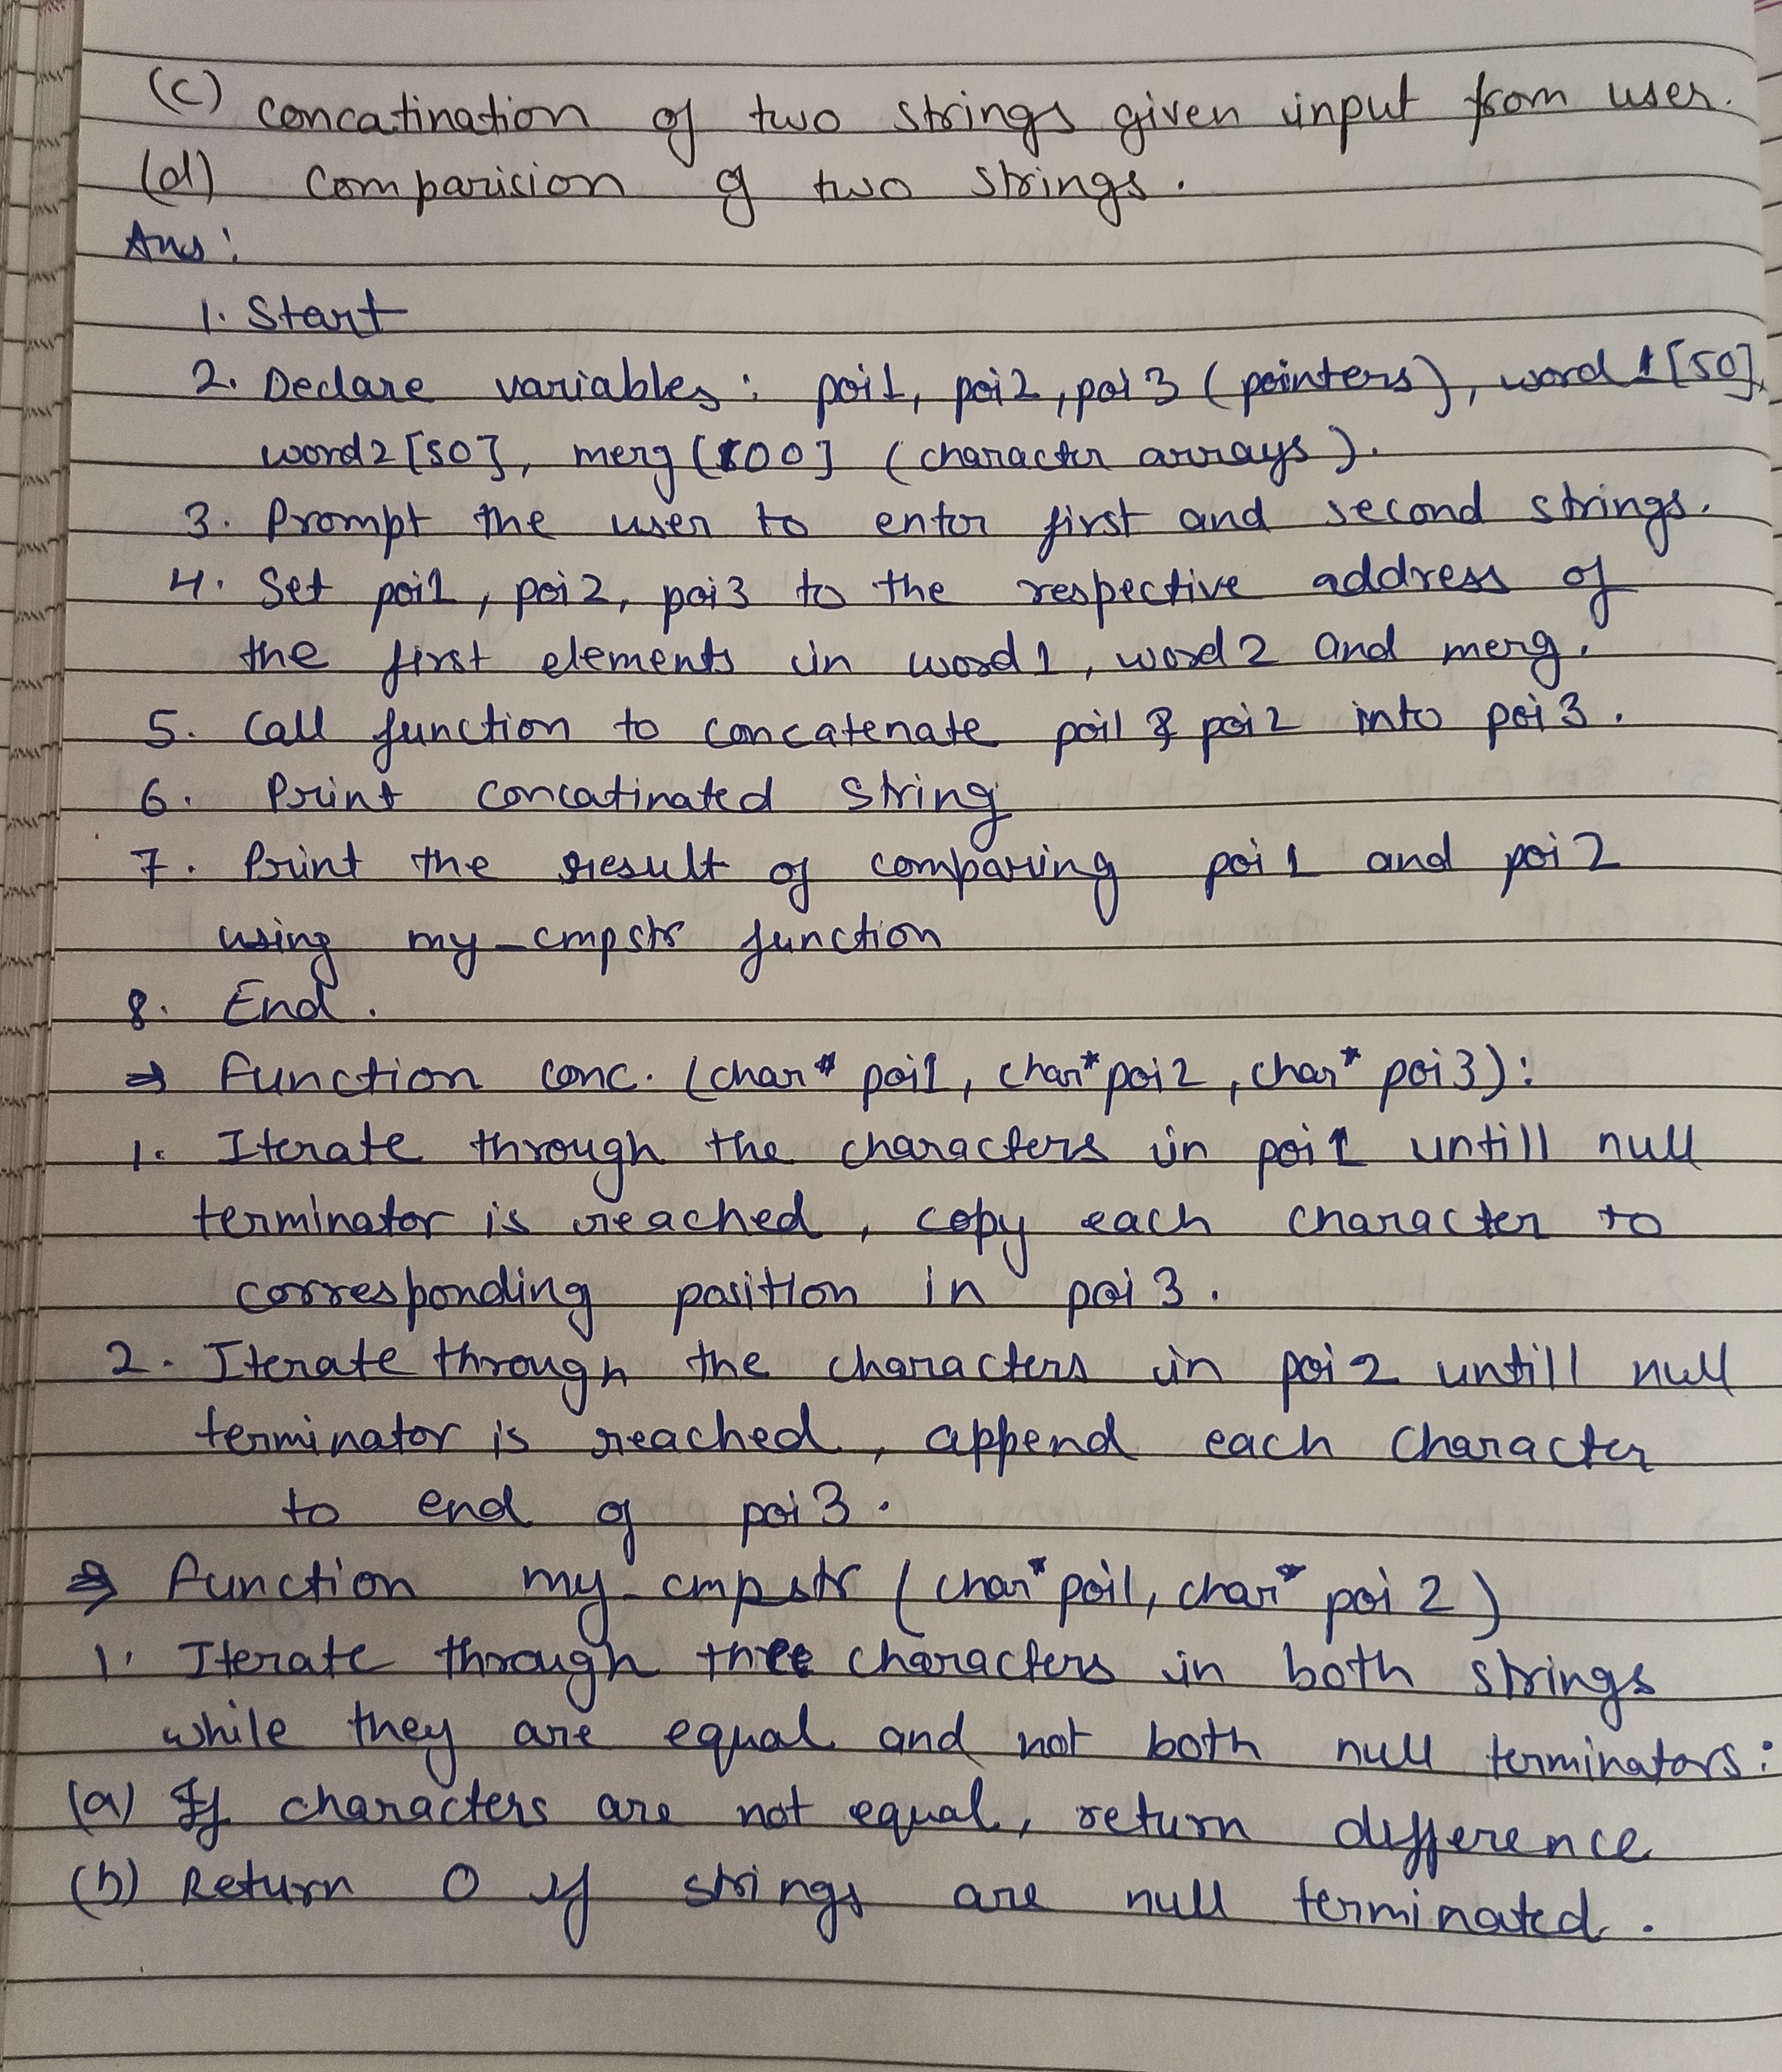 (c) concatination of two strings given input from user.
(d) Comparicion of two strings.
Ans:
1. Start
2. Declare variables: poi1, poi2, poi3 (pointers), word1[50],
word2[50], merg[100] (character arrays).
3. Prompt the user to enter first and second strings.
4. Set poi1, poi2, poi3 to the respective address of
the first elements in word1, word2 and merg.
5. Call function to concatenate poi1 & poi2 into poi3.
6. Print concatinated string
7. Print the result of comparing poi1 and poi2
using my_cmpstr function
8. End.
⇒ Function conc. (char* poi1, char* poi2, char* poi3):
1. Iterate through the characters in poi1 untill null
terminator is reached, copy each character to
corresponding position in poi3.
2. Iterate through the characters in poi2 untill null
terminator is reached, append each character
to end of poi3.
⇒ Function my_cmpstr (char* poi1, char* poi2)
1. Iterate through the characters in both strings
while they are equal and not both null terminators:
(a) If characters are not equal, return difference
(b) Return 0 if strings are null terminated.